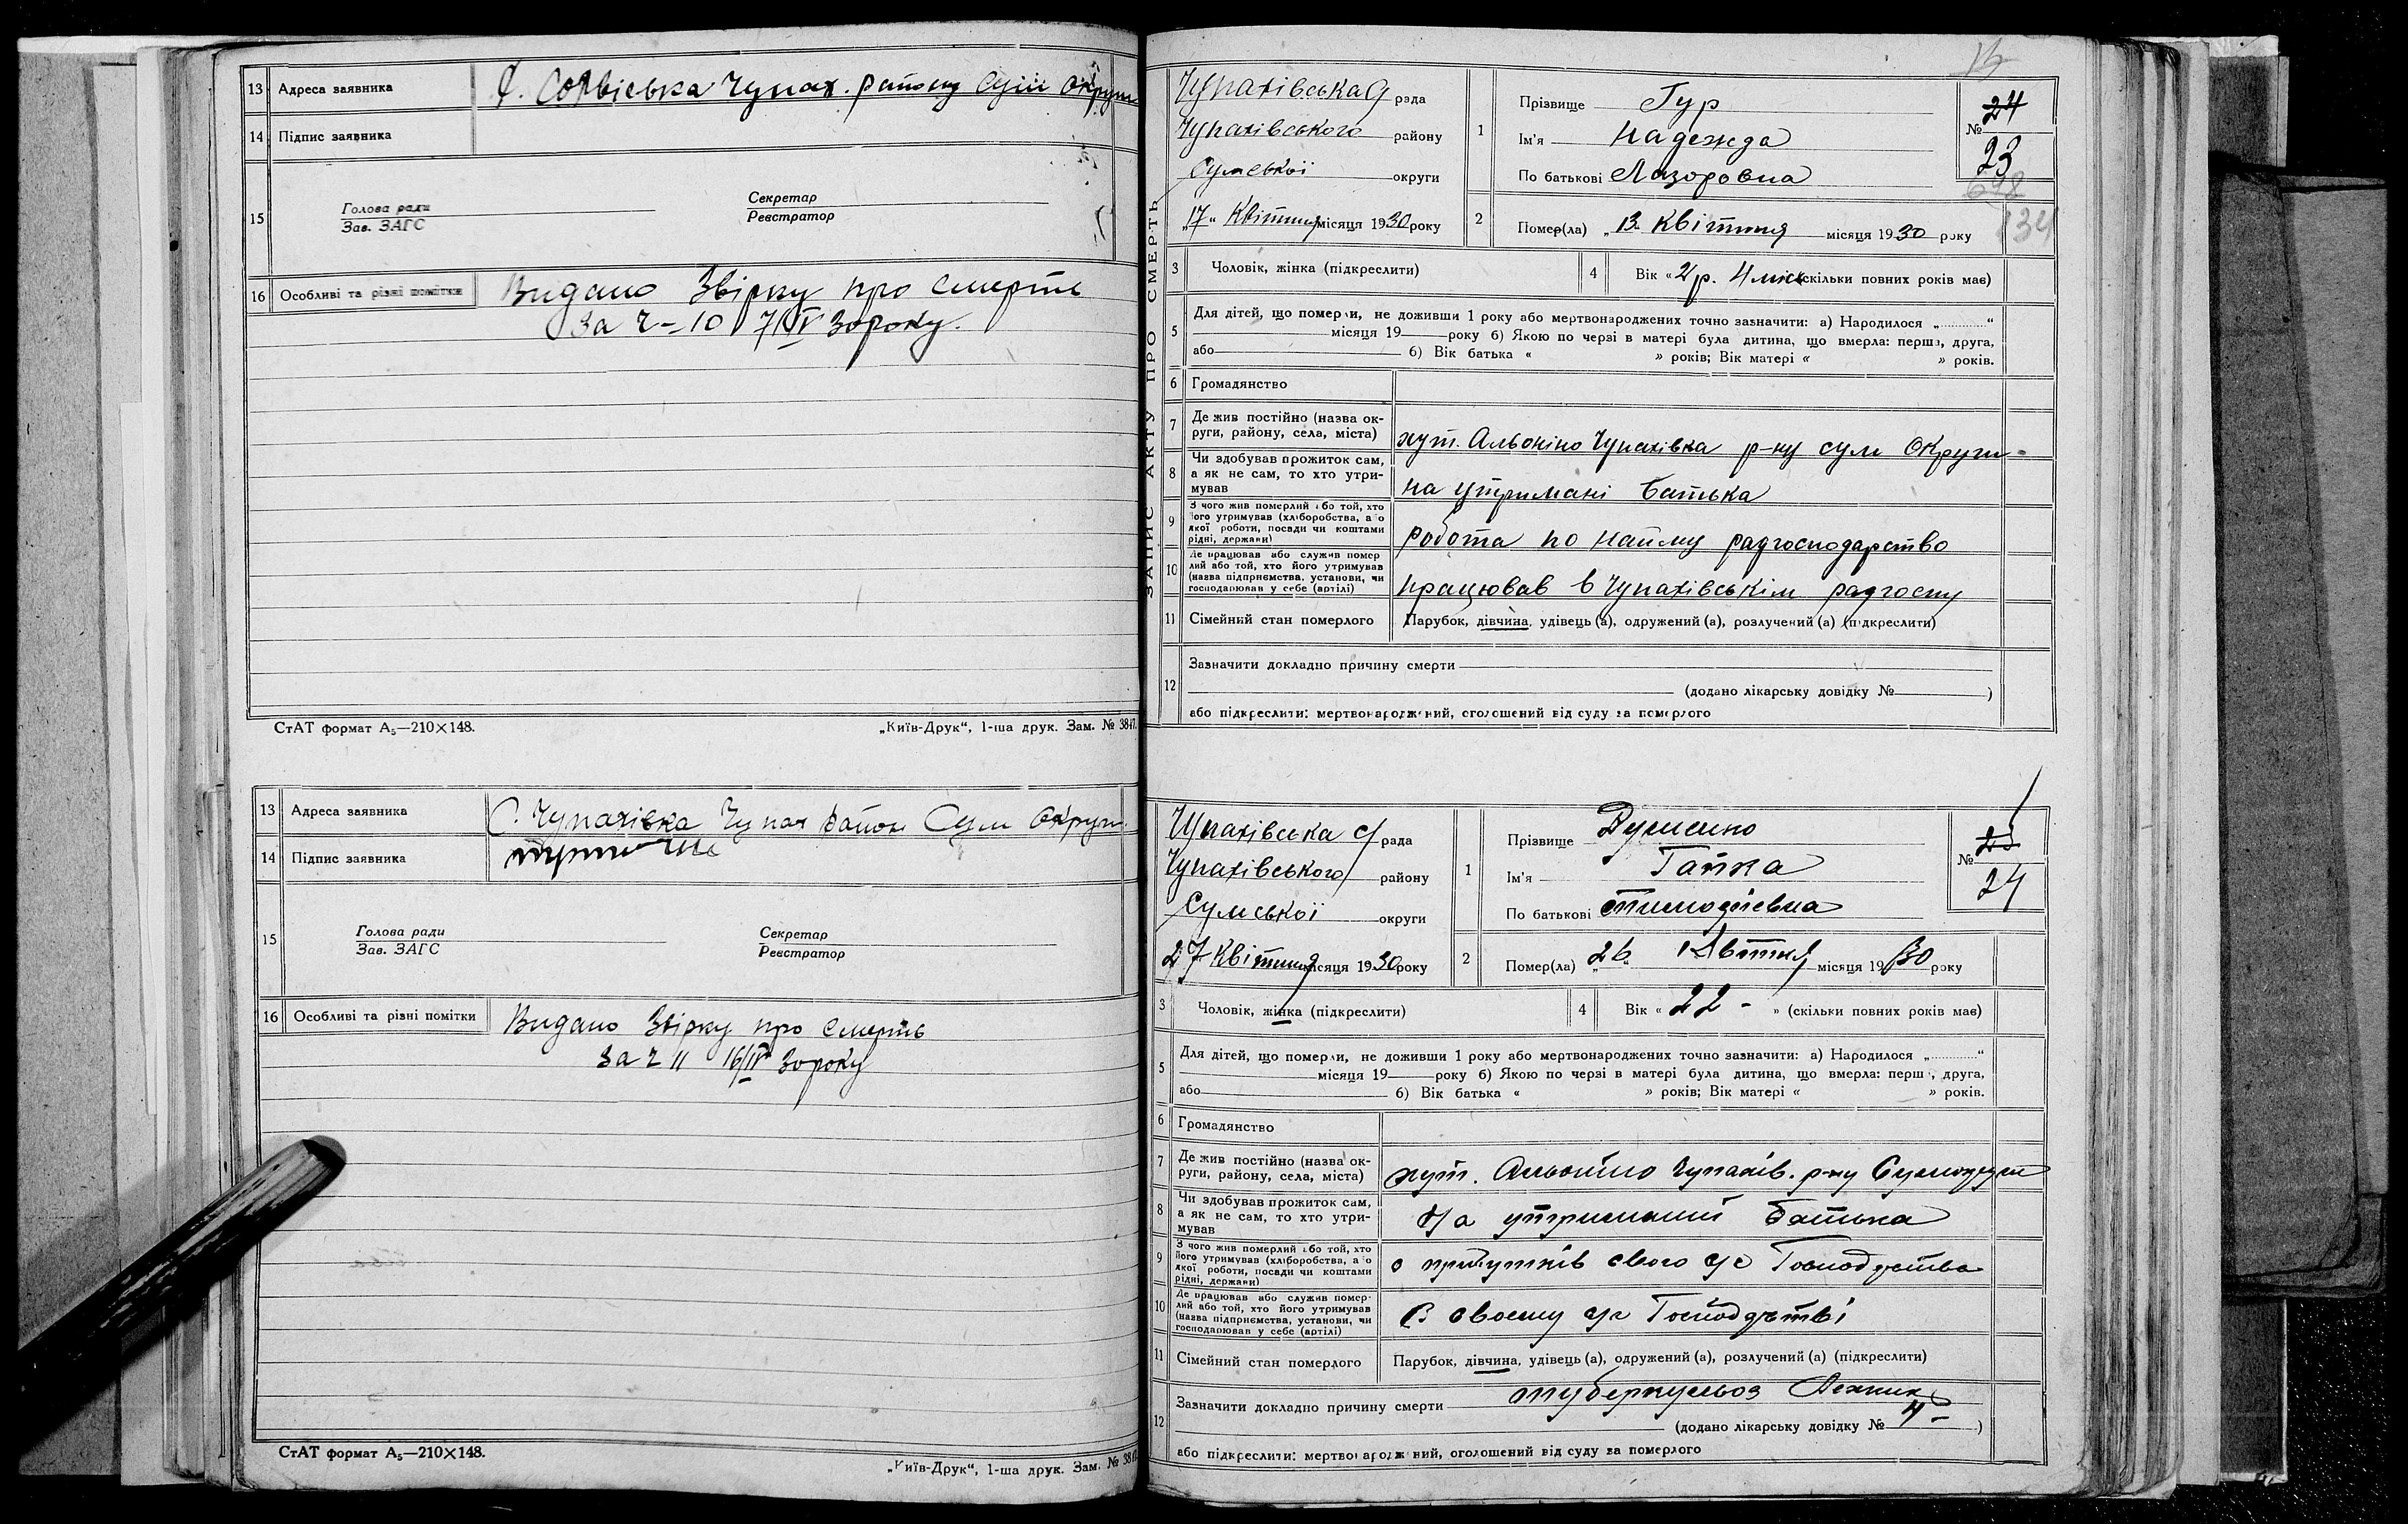 13 Адреса заявника
Чупах. району Сум округи
14 Підпис заявника
15
Голова ради
Зав. ЗАГС
Секретар
Реєстратор
16 Особливі та різні помітки
Видано Звірку про смерть
За ч-10 7/IV 30 року.
СтАТ формат А₅—210×148.
„Київ-Друк“, 1-ша друк. Зам. № 3847.
13 Адреса заявника
С. Чупахівка Чупах район Сум округи
14 Підпис заявника
15
Голова ради
Зав. ЗАГС
Секретар
Реєстратор
16 Особливі та різні помітки
Видано Звірку про смерть
За ч 11 16/IV 30 року
СтАТ формат А₅—210×148.
„Київ-Друк“, 1-ша друк. Зам. №
ЗАПИС АКТУ ПРО СМЕРТЬ
Чупахівська рада
Чупахівського району
Сумської округи
„17“ Квітня місяця 1930 року
1
Прізвище Гур
Ім'я Надежда
По батькові Лазоровна
№ 24
23
134
2 Помер(ла) „13 Квітня місяця 1930 року
3 Чоловік, жінка (підкреслити)
4 Вік « 2 р. 4 міс скільки повних років має)
5 Для дітей, що померли, не доживши 1 року або мертвонароджених точно зазначити: а) Народилося „............“
місяця 19 року б) Якою по черзі в матері була дитина, що вмерла: перша, друга,
або б) Вік батька « » років; Вік матері « » років.
6 Громадянство
7 Де жив постійно (назва округи, району, села, міста)
хут. Альоніно Чупахівка р-ну сум округи-
8 Чи здобував прожиток сам, а як не сам, то хто утримував
на утримані батька
9 З чого жив померлий або той, хто його утримував (хліборобства, або якої роботи, посади чи коштами рідні, держави)
робота по найму радгосподарство
10 Де працював або служив померлий або той, хто його утримував (назва підприємства, установи, чи господарював у себе (артілі)
працював в Чупахівськім радгоспу
11 Сімейний стан померлого
Парубок, дівчина, удівець (а), одружений (а), розлучений (а) (підкреслити)
12 Зазначити докладно причину смерти
(додано лікарську довідку № )
або підкреслити: мертвонароджений, оголошений від суду за померлого
Чупахівська с/рада
Чупахівського району
Сумської округи
27 Квітня місяця 1930 року
1
Прізвище
Ім'я Гапка
По батькові
№ 25
24
2 Помер(ла) „26“ Квітня місяця 1930 року
3 Чоловік, жінка (підкреслити)
4 Вік « 22 - » (скільки повних років має)
5 Для дітей, що померли, не доживши 1 року або мертвонароджених точно зазначити: а) Народилося „............“
місяця 19 року б) Якою по черзі в матері була дитина, що вмерла: перша, друга,
або б) Вік батька « » років; Вік матері « » років.
6 Громадянство
7 Де жив постійно (назва округи, району, села, міста)
хут. Альоніно Чупахів. р-ну
8 Чи здобував прожиток сам, а як не сам, то хто утримував
На утриманні батька
9 З чого жив померлий або той, хто його утримував (хліборобства, або якої роботи, посади чи коштами рідні, держави)
з прибутків свого с/г Господрства
10 Де працював або служив померлий або той, хто його утримував (назва підприємства, установи, чи господарював у себе (артілі)
В своєму с/г Господрстві
11 Сімейний стан померлого
Парубок, дівчина, удівець (а), одружений (а), розлучений (а) (підкреслити)
12 Зазначити докладно причину смерти туберкульоз
(додано лікарську довідку № 4- )
або підкреслити: мертвонароджений, оголошений від суду за померлого